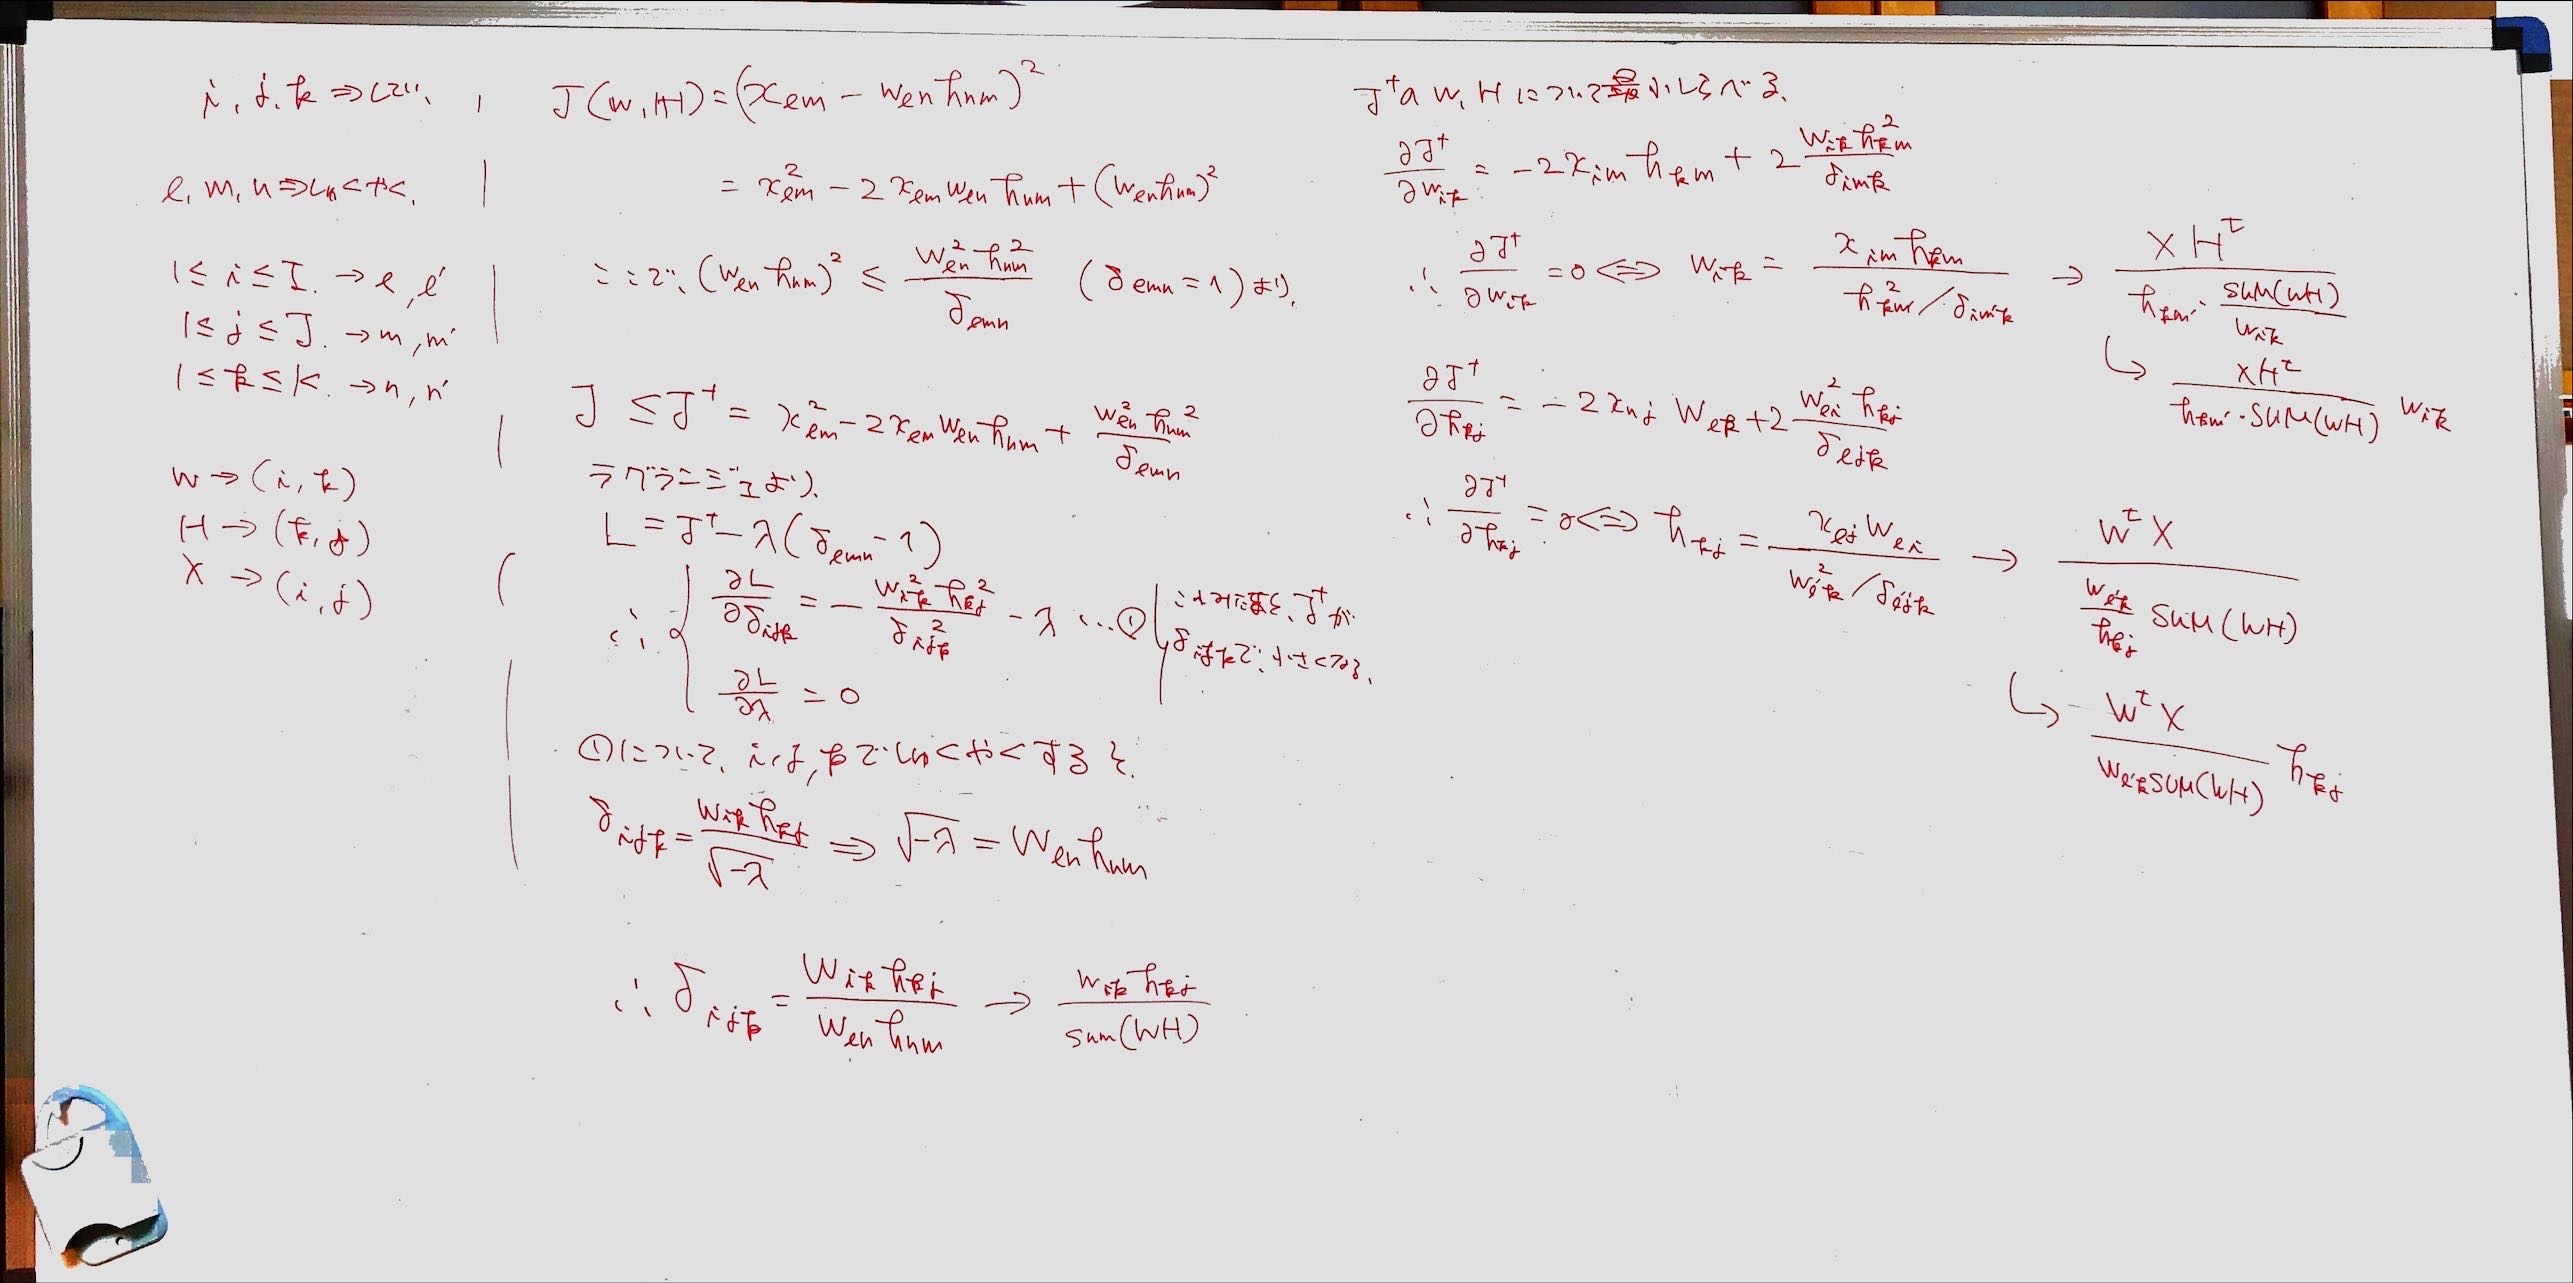 i, j, k ⇒ してい、
l, m, n ⇒ しゅくやく.
1 ≤ i ≤ I. → l, l'
1 ≤ j ≤ J. → m, m'
1 ≤ k ≤ K. → n, n'
W → (i, k)
H → (k, j)
X → (i, j)
J(W, H) = (x_{lm} - w_{ln} h_{nm})^2
= x_{lm}^2 - 2 x_{lm} w_{ln} h_{nm} + (w_{ln} h_{nm})^2
ここで、(w_{ln} h_{nm})^2 ≤ \frac{w_{ln}^2 h_{nm}^2}{δ_{lmn}} (δ_{lmn} = 1) より、
J ≤ J^+ = x_{lm}^2 - 2 x_{lm} w_{ln} h_{nm} + \frac{w_{ln}^2 h_{nm}^2}{δ_{lmn}}
ラグランジュより、
L = J^+ - λ(δ_{lmn} - 1)
∴ { \frac{∂L}{∂δ_{ijk}} = -\frac{w_{ik}^2 h_{kj}^2}{δ_{ijk}^2} - λ …①
\frac{∂L}{∂λ} = 0
これみたすと、J^+が
δ_{ijk}で、小さくなる、
①について、i, j, kでしゅくやくすると、
δ_{ijk} = \frac{w_{ik} h_{kj}}{\sqrt{-λ}} ⇒ \sqrt{-λ} = w_{ln} h_{nm}
∴ δ_{ijk} = \frac{w_{ik} h_{kj}}{w_{ln} h_{nm}} → \frac{w_{ik} h_{kj}}{sum(WH)}
J^+の W, H について最小しらべる、
\frac{∂J^+}{∂w_{ik}} = -2 x_{im} h_{km} + 2 \frac{w_{ik} h_{km}^2}{δ_{imk}}
∴ \frac{∂J^+}{∂w_{ik}} = 0 ⇔ w_{ik} = \frac{x_{im} h_{km}}{h_{km'}^2 / δ_{im'k}} → \frac{X H^t}{h_{km'} · \frac{SUM(WH)}{w_{ik}}}
↳ \frac{X H^t}{h_{km'} · SUM(WH)} w_{ik}
\frac{∂J^+}{∂h_{kj}} = -2 x_{nj} w_{lk} + 2 \frac{w_{li}^2 h_{kj}}{δ_{ljk}}
∴ \frac{∂J^+}{∂h_{kj}} = 0 ⇔ h_{kj} = \frac{x_{lj} w_{li}}{w_{l'k}^2 / δ_{l'jk}} → \frac{W^t X}{\frac{w_{l'k}}{h_{kj}} SUM(WH)}
↳ \frac{W^t X}{w_{l'k} SUM(WH)} h_{kj}